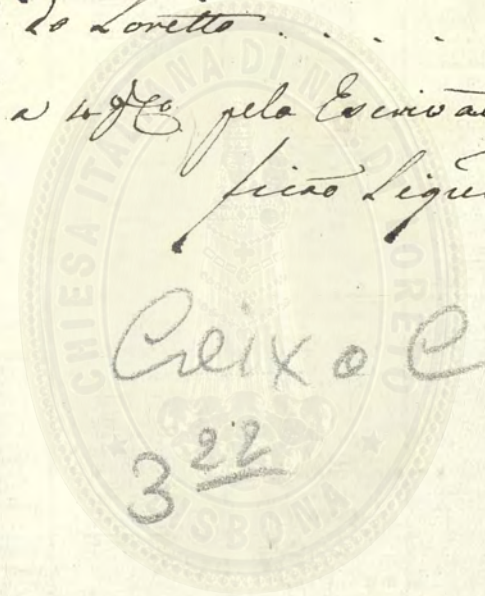 do Loretto . . . . .
a pela Escrivaõ
ficaõ Liqui
Caixa C
3 22
CHIESA ITALIANA DI N. S. DI LORETO
LISBONA